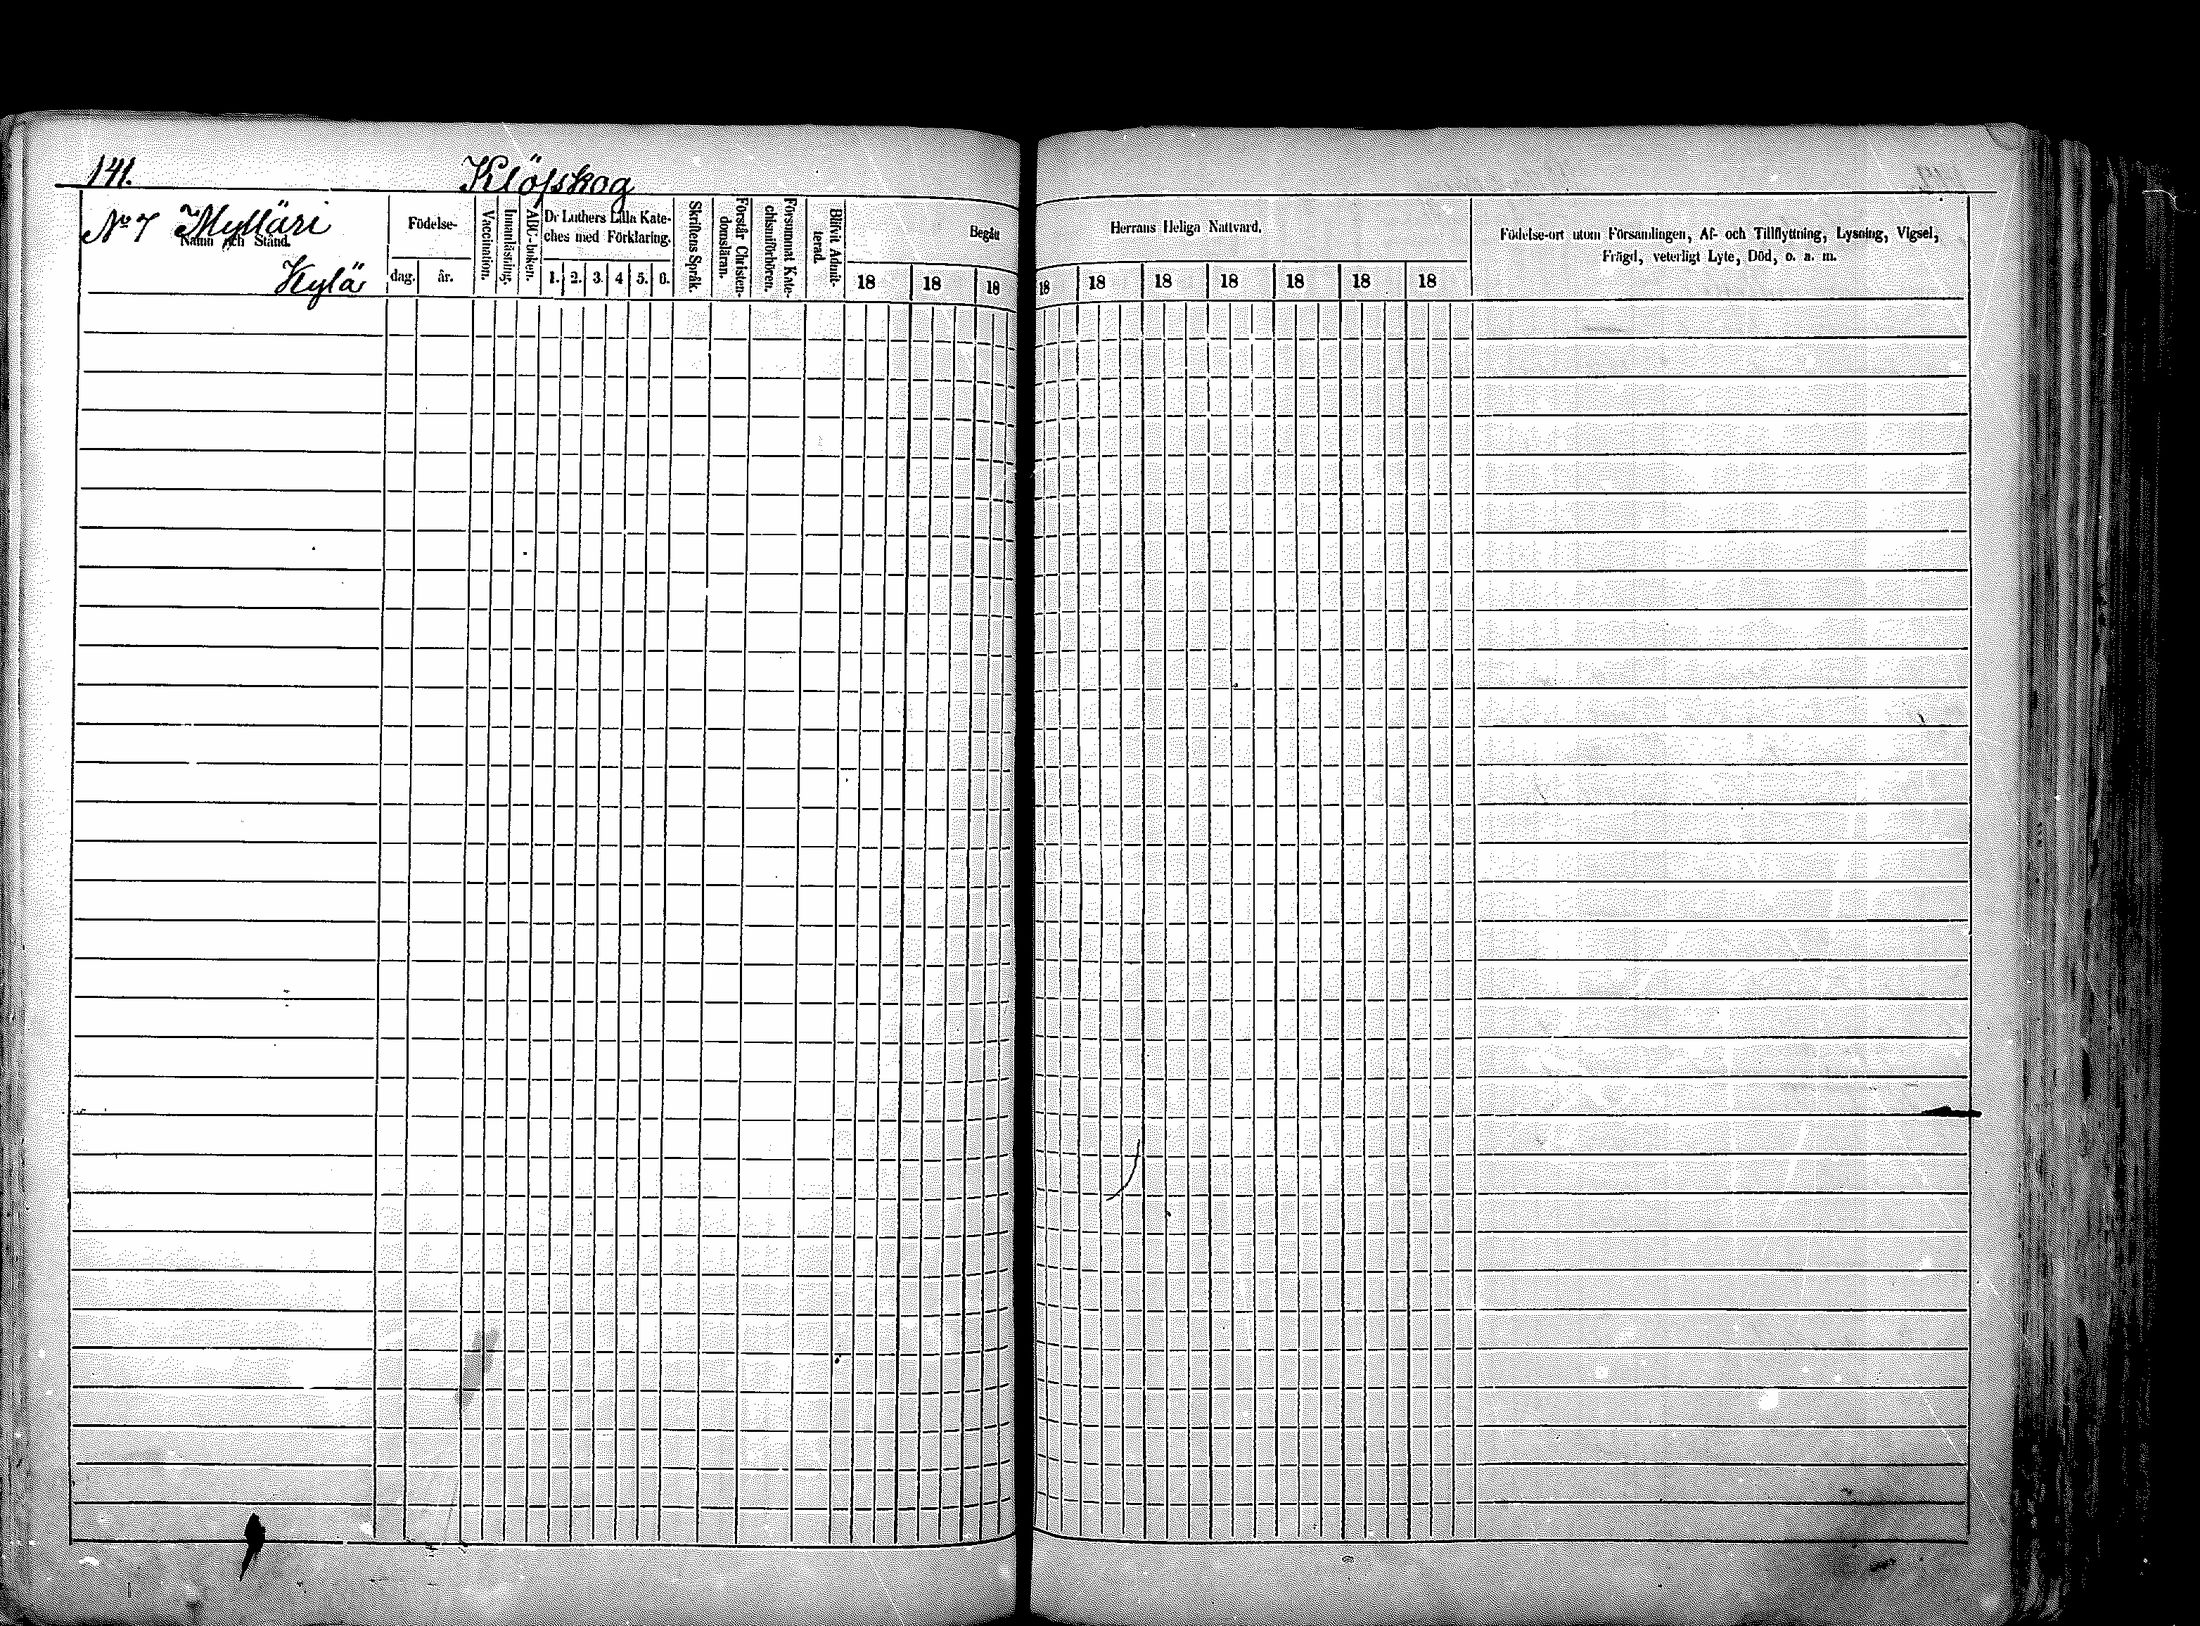 141.
Klöfskog
No 7 Mylläri
Namn och Stånd.
Kylä
Födelse-
dag.
år.
Vaccination.
Innanläsning.
ABC-boken.
Dr Luthers Lilla Kate-
ches med Förklaring.
1. 2. 3. 4 5. 6.
Skriftens Språk.
Förstår Christen-
domsläran.
Försummat Kate-
chismiförhören.
Blifvit Admit-
terad.
Begått
18 18 18
Herrans Heliga Nattvard.
18 18 18 18 18 18 18
Födelse-ort utom Församlingen, Af- och Tillflyttning, Lysning, Vigsel,
Frägd, veterligt Lyte, Död, o. s. m.